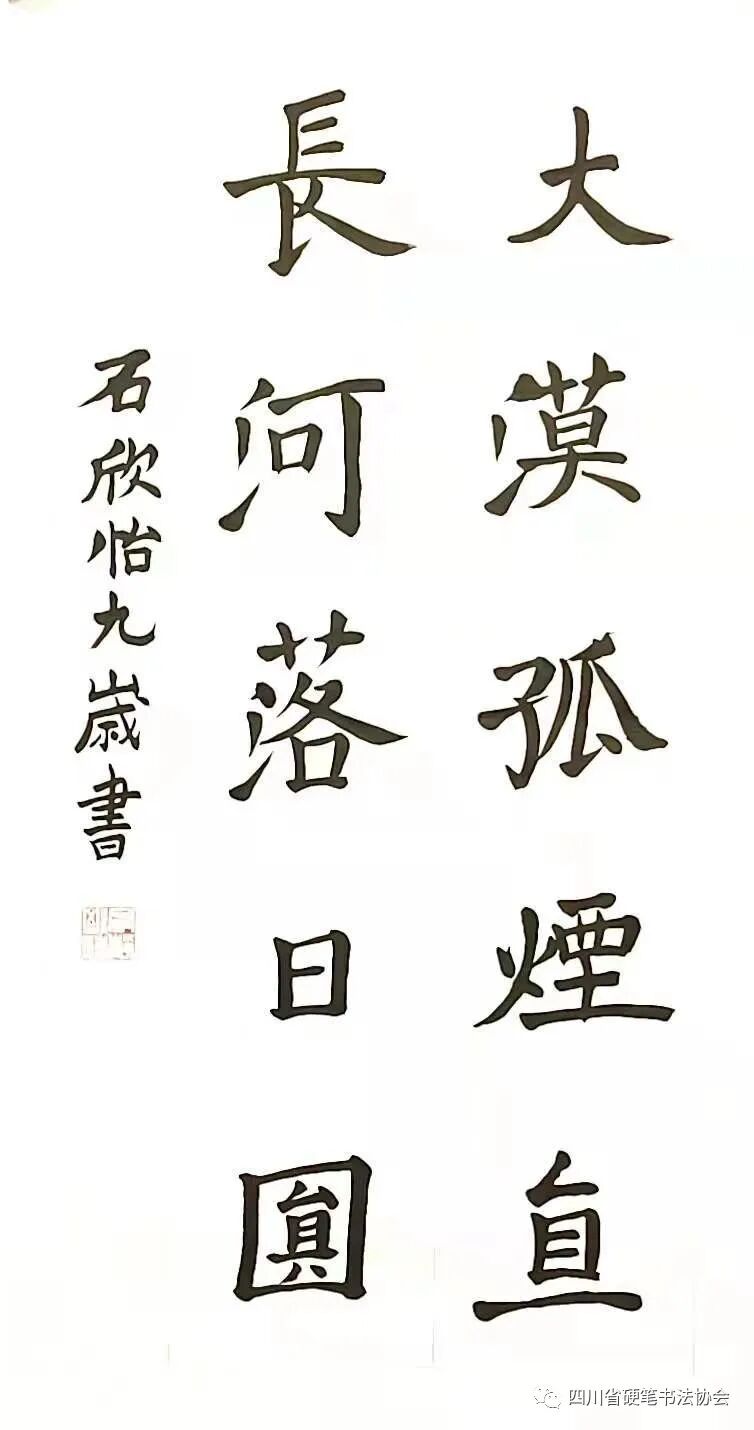 大漠孤煙直
長河落日圓
石欣怡九歲書
四川省硬笔书法协会